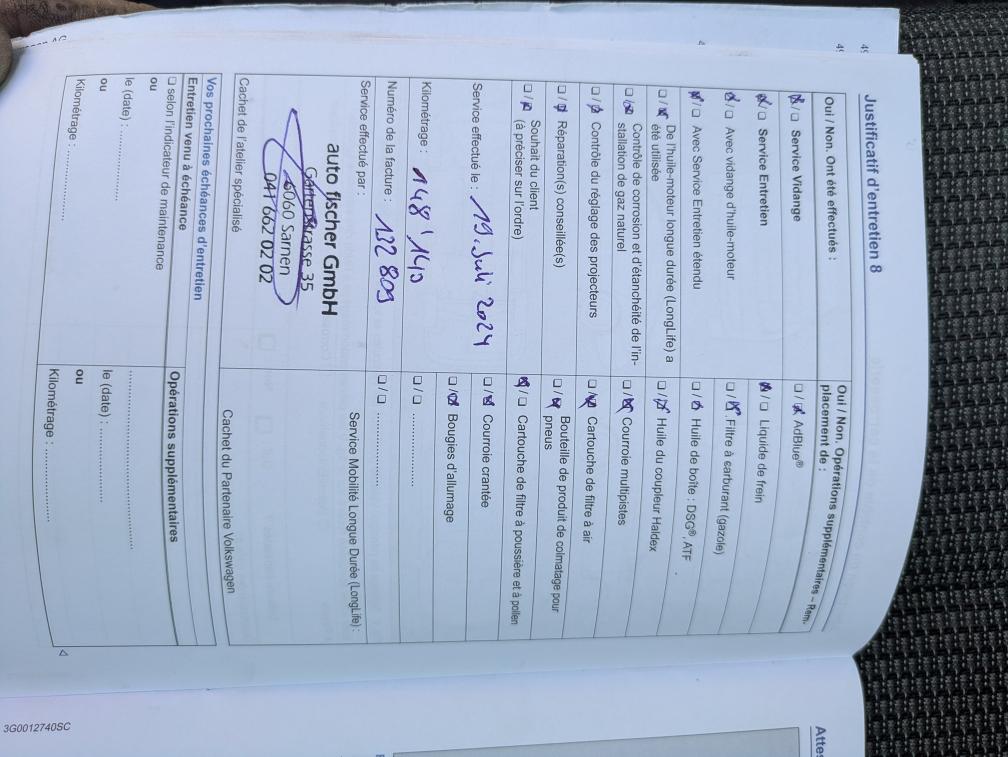 Justificatif d'entretien 8
Oui / Non. Ont été effectués :
☒/☐ Service Vidange
☒/☐ Service Entretien
☒/☐ Avec vidange d'huile-moteur
☒/☐ Avec Service Entretien étendu
☐/☒ De l'huile-moteur longue durée (LongLife) a
été utilisée
☐/☒ Contrôle de corrosion et d'étanchéité de l'in-
stallation de gaz naturel
☐/☒ Contrôle du réglage des projecteurs
☐/☒ Réparation(s) conseillée(s)
☐/☒ Souhait du client
(à préciser sur l'ordre)
Service effectué le : 19. Juli 2024
Kilométrage : 148'140
Numéro de la facture : 132 809
Service effectué par :
auto fischer GmbH
Gartenstrasse 35
6060 Sarnen
041 662 02 02
Cachet de l'atelier spécialisé
Oui / Non. Opérations supplémentaires – Rem-
placement de :
☐/☒ AdBlue®
☒/☐ Liquide de frein
☐/☒ Filtre à carburant (gazole)
☐/☒ Huile de boîte : DSG®, ATF
☐/☒ Huile du coupleur Haldex
☐/☒ Courroie multipistes
☐/☒ Cartouche de filtre à air
☐/☒ Bouteille de produit de colmatage pour
pneus
☒/☐ Cartouche de filtre à poussière et à pollen
☐/☒ Courroie crantée
☐/☒ Bougies d'allumage
☐/☐ ..................
☐/☐ ..................
Service Mobilité Longue Durée (LongLife) :
Cachet du Partenaire Volkswagen
Vos prochaines échéances d'entretien
Entretien venu à échéance
☐ selon l'indicateur de maintenance
ou
le (date) : ..................
ou
Kilométrage : ..................
Opérations supplémentaires
..................
le (date) : ..................
ou
Kilométrage : ..................
3G0012740SC